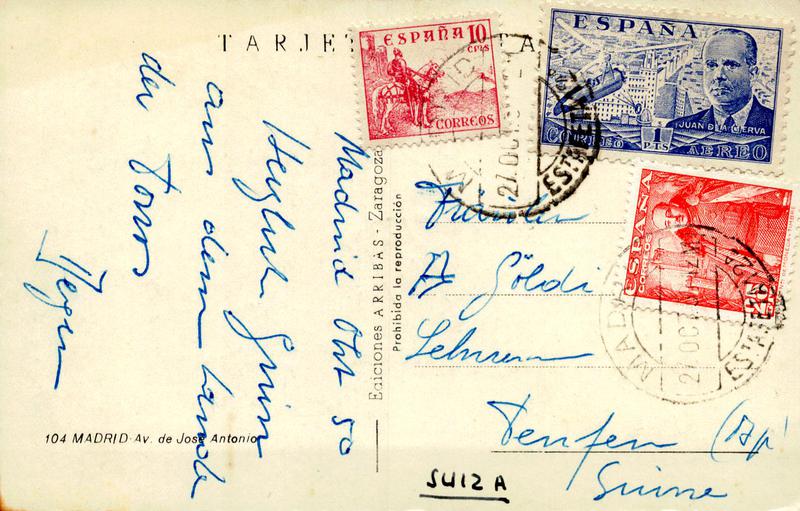 TARJE
ESPAÑA 10
CTMS
CORREOS
ESPAÑA
JUAN DE LA CIERVA
CORREO 1 AEREO
PTS
ESPAÑA
MADRID
27 OCT
ESTAFETA
Madrid Okt 50
Herzlich
aus dem Lande
der Toros
Fräulein
A Göldi
Lehrerin
Teufen (Ap
Suisse
SUIZA
Ediciones ARRIBAS - Zaragoza
Prohibida la reproducción
104 MADRID-Av. de José Antonio